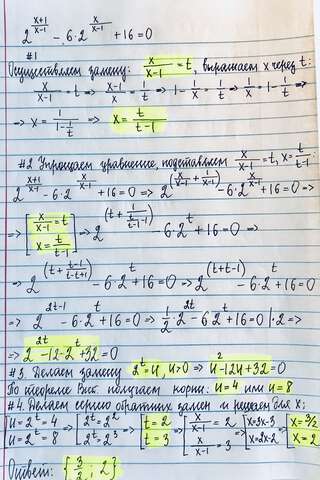 2^{\frac{x+1}{x-1}} - 6·2^{\frac{x}{x-1}} + 16 = 0
#1
Осуществляем замену: \frac{x}{x-1} = t, выражаем x через t:
\frac{x}{x-1} = t ⇒ \frac{x-1}{x} = \frac{1}{t} ⇒ 1 - \frac{1}{x} = \frac{1}{t} ⇒ \frac{1}{x} = 1 - \frac{1}{t} ⇒
⇒ x = \frac{1}{1-\frac{1}{t}} ⇒ x = \frac{t}{t-1}
#2 Упрощаем уравнение, подставляем \frac{x}{x-1} = t, x = \frac{t}{t-1}:
2^{\frac{x+1}{x-1}} - 6·2^{\frac{x}{x-1}} + 16 = 0 ⇒ 2^{(\frac{x}{x-1} + \frac{1}{x-1})} - 6·2^{\frac{x}{x-1}} + 16 = 0 ⇒
⇒ [\frac{x}{x-1} = t x = \frac{t}{t-1}] ⇒ 2^{(t + \frac{1}{\frac{t}{t-1}-1})} - 6·2^{t} + 16 = 0 ⇒
⇒ 2^{(t + \frac{t-1}{t-t+1})} - 6·2^{t} + 16 = 0 ⇒ 2^{(t+t-1)} - 6·2^{t} + 16 = 0
⇒ 2^{2t-1} - 6·2^{t} + 16 = 0 ⇒ \frac{1}{2}·2^{2t} - 6·2^{t} + 16 = 0 |·2 ⇒
⇒ 2^{2t} - 12·2^{t} + 32 = 0
#3. Делаем замену 2^{t} = u, u > 0 ⇒ u^{2} - 12u + 32 = 0
По теореме Виета получаем корни: u = 4 или u = 8
#4. Делаем серию обратных замен и решаем для x:
[u = 2^{t} = 4 u = 2^{t} = 8 ⇒ [2^{t} = 2^{2} 2^{t} = 2^{3} ⇒ [t = 2 t = 3 ⇒ [\frac{x}{x-1} = 2 \frac{x}{x-1} = 3 ⇒ [x = 3x-3 x = 2x-2 ⇒ [x = 3/2 x = 2
Ответ: {\frac{3}{2}; 2}